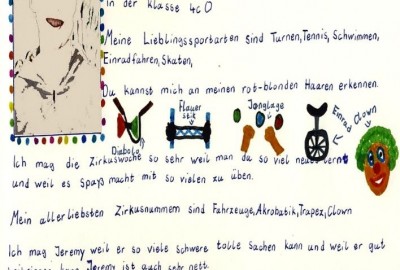 in der Klasse 4c0
Meine Lieblingssportarten sind Turnen, Tennis, Schwimmen,
Einradfahren, Skaten,
Du kannst mich an meinen rot-blonden Haaren erkennen.
Diabolo
Flauer
stit
Jonglage
Einrad Clown
Ich mag die Zirkuswoche so sehr weil man da so viel neues lernt
und weil es Spaß macht mit so vielen zu üben.
Mein allerliebsten Zirkusnummern sind Fahrzeuge, Akrobatik, Trapez, Clown
Ich mag Jeremy weil er so viele schwere tolle Sachen kann und weil er gut
kann Jeremy ist auch sehr nett.